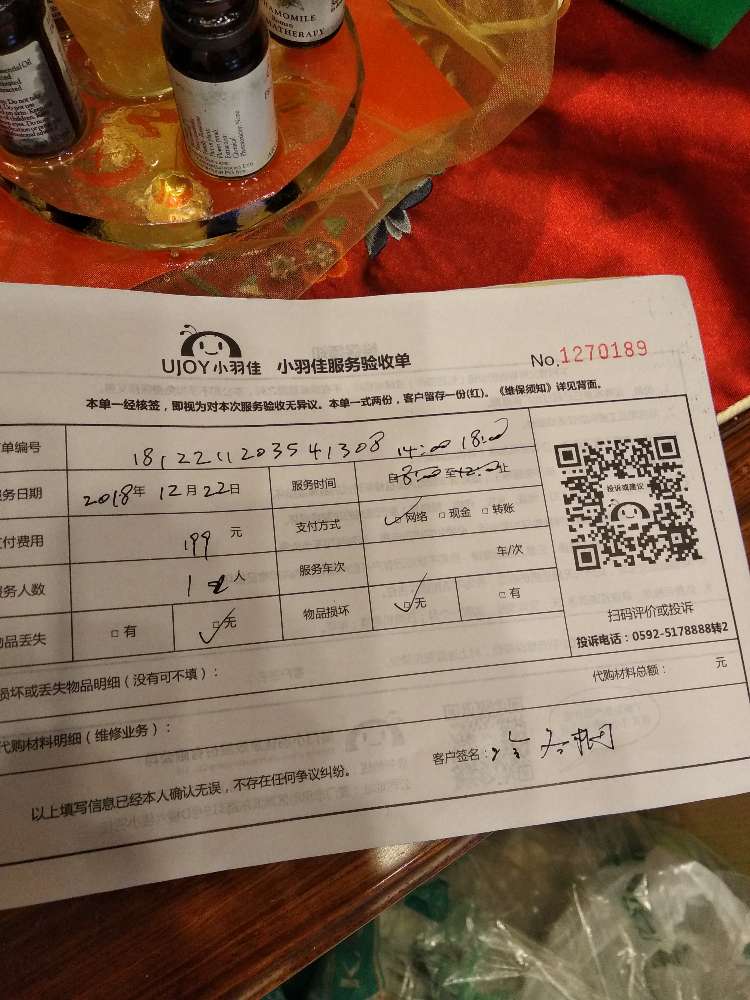 CHAMOMILE
Roman
UJOY小羽佳 小羽佳服务验收单 No.1270189
本单一经核签，即视为对本次服务验收无异议。本单一式两份，客户留存一份(红)。《维保须知》详见背面。
单编号 1812211203541308 14:00 18:00
务日期 2018年 12月22日 服务时间 自8:00至12:00止
付费用 199元 支付方式 ☑网络 □现金 □转账
务人数 1人 服务车次 车/次
品丢失 □有 ☑无 物品损坏 ☑无 □有
投诉或建议
扫码评价或投诉
投诉电话：0592-5178888转2
损坏或丢失物品明细（没有可不填）： 代购材料总额： 元
代购材料明细（维修业务）：
客户签名：
以上填写信息已经本人确认无误，不存在任何争议纠纷。